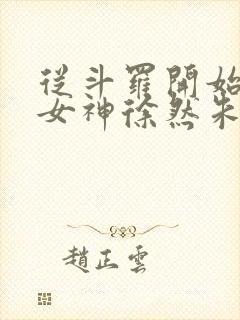 從斗羅開始
女神徐然朱
趙正雲